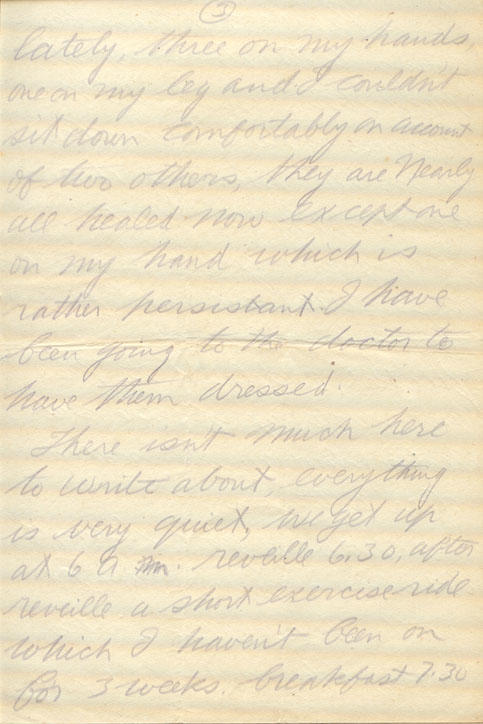 (3)
lately, three on my hands,
one on my leg and I couldn't
sit down comfortably on account
of two others, they are nearly
all healed now except one
on my hand which is
rather persistant. I have
been going to the doctor to
have them dressed.
There isn't much here
to write about, everything
is very quiet, we get up
at 6 a.m. reveille 6.30, after
reveille a short exercise ride
which I haven't been on
for 3 weeks. breakfast 7.30